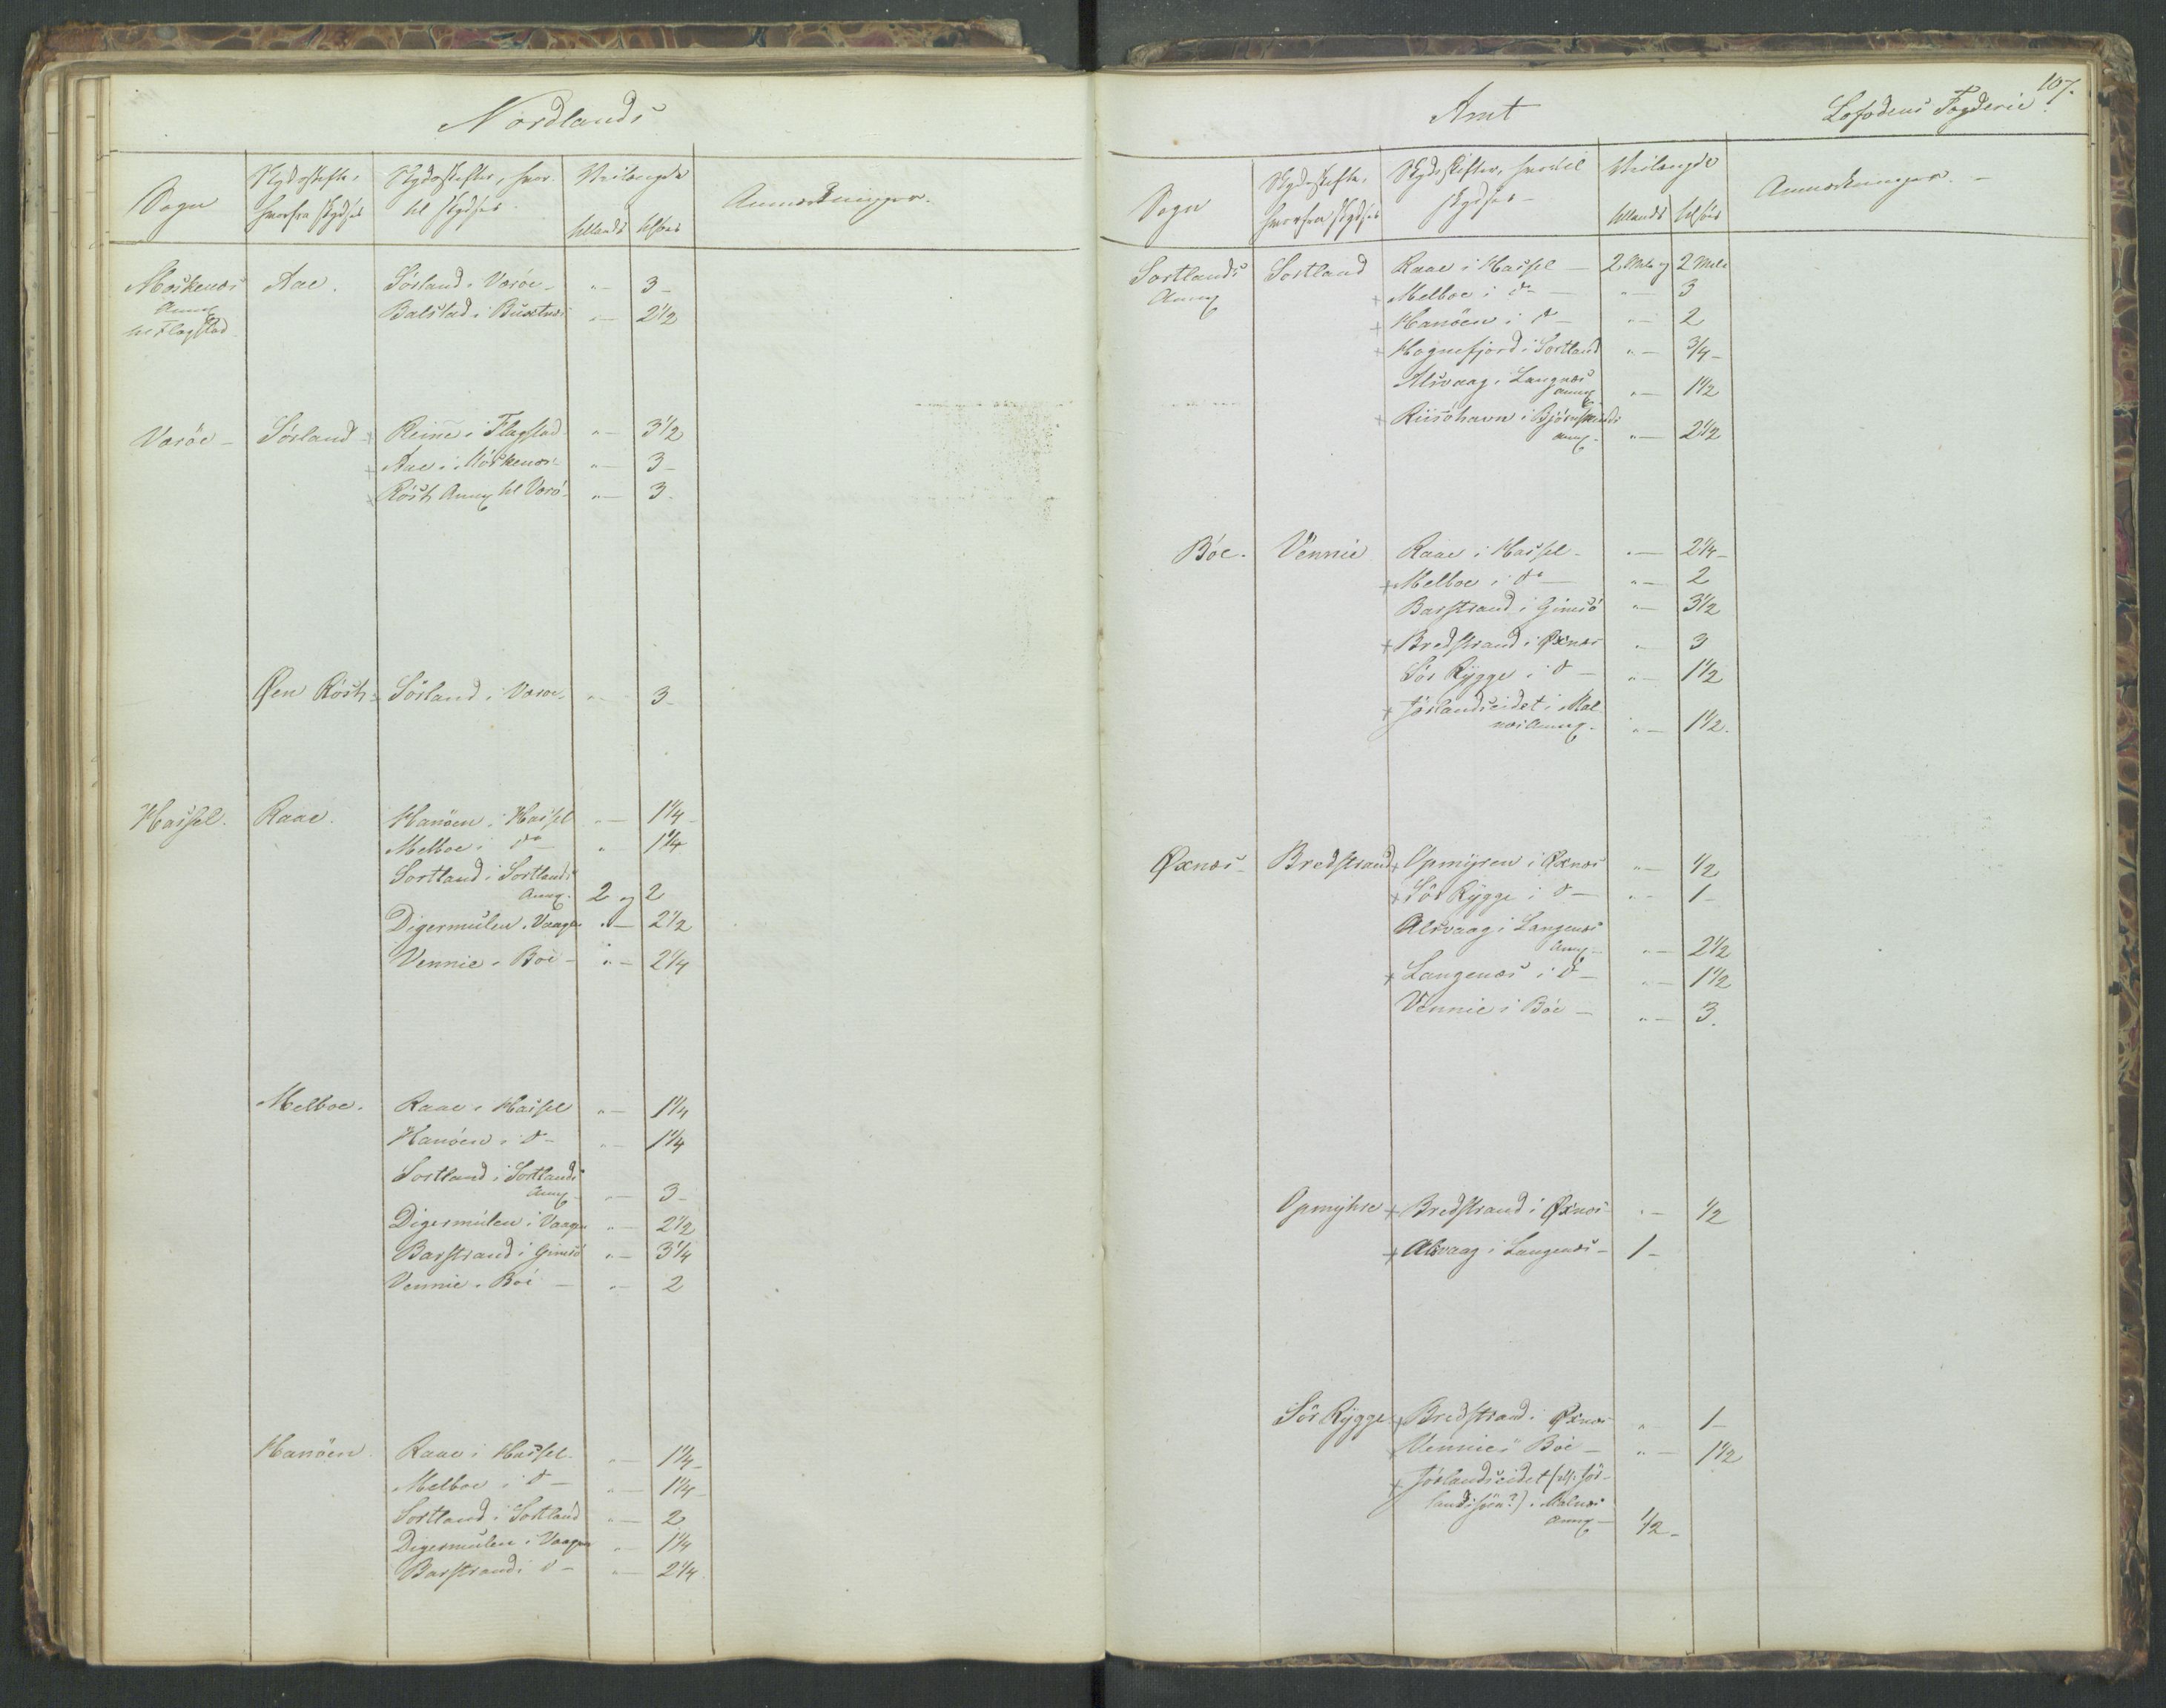 Nordlands
Sogn
Skydsskifte,
hvorfra skydses
Skydsskifter, hvor-
til skydses
Veilængde
tillands tilsøes
Anmærkninger.
Moskenæs Aae. Sørland i Værøe - " - 3 -
Annex Balstad i Buxnæs " - 2 1/2
til Flagstad
Værøe - Sørland + Reine i Flagstad " - 3 1/2
+ Aae i Moskenæs - " - 3 -
+ Røst, Annex til Værø - " - 3.
Øen Røst + Sørland i Værøe " - 3 -
Hassel. Raae. Hanøen i Hassel " - 1 1/4 -
Melboe i do " 1 1/4
Sortland i Sortlands
Annex. 2 og 2
Digermulen i Vaagen " - 2 1/2
Vennie i Boe - " - 2 1/4
Melboe. Raae i Hassel " - 1 1/4
Hanøen i do - " - 1 1/4
Sortland i Sortlands
Annex - " - 3 -
Digermulen i Vaagen " - 2 1/2
Barstrand i Gimsø " - 3 1/4
Vennie i Boe - " - 2
Hanøen. Raae i Hassel. " - 1 1/4 -
Melboe i do - " - 1 1/4 -
Sortland i Sortland " - 2
Digermulen i Vaagen " - 1 1/4
Barstrand i do - " - 2 1/4
107.
Amt
Lofodens Fogderie.
Sogn
Skydsskifte,
hvorfra skydses
Skydsskifter, hvortil
skydses -
Veilængde
tillands tilsøes
Anmærkninger. -
Sortlands Sortland Raae i Hassel - 2 Mile og 2 Mile
Annex + Melboe i do - " - 3
+ Hanøen i do - " - 2
+ Hognfjord i Sortland " - 3/4 -
Alsvaag i Langnæs
Annex " - 1 1/2
+ Riisöhavn i Bjørnskinds
Annex. " - 2 1/2
Bøe. Vennie Raae i Hassel - " - 2 1/4 -
+ Melboe i do - " - 2
Barstrand i Gimsö " - 3 1/2
+ Bredstrand i Øxnæs " - 3
Sör Rygge i do - " - 1 1/2
+ Jörlandseidet i Mal-
næs Annex. " - 1 1/2.
Øxnæs - Bredstrand + Opmyren i Øxnæs " - 1/2
+ Sör Rygge i do - " - 1 -
Alsvaag i Langenæs
Annex - " - 2 1/2
+ Langenæs i do - " - 1 1/2
Vennie i Böe - " - 3.
Opmyhre + Bredstrand i Øxnæs " - 1/2
+ Alsvaag i Langenæs - 1 -
Sör Rygge. + Bredstrand i Øxnæs " - 1 -
+ Vennie i Böe - " - 1 1/2
+ Jörlandseidet (
) i Malnæs
Annex - 1/2 -